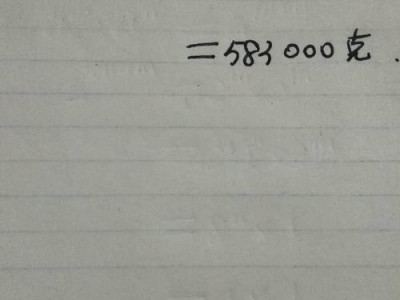 =583000克.